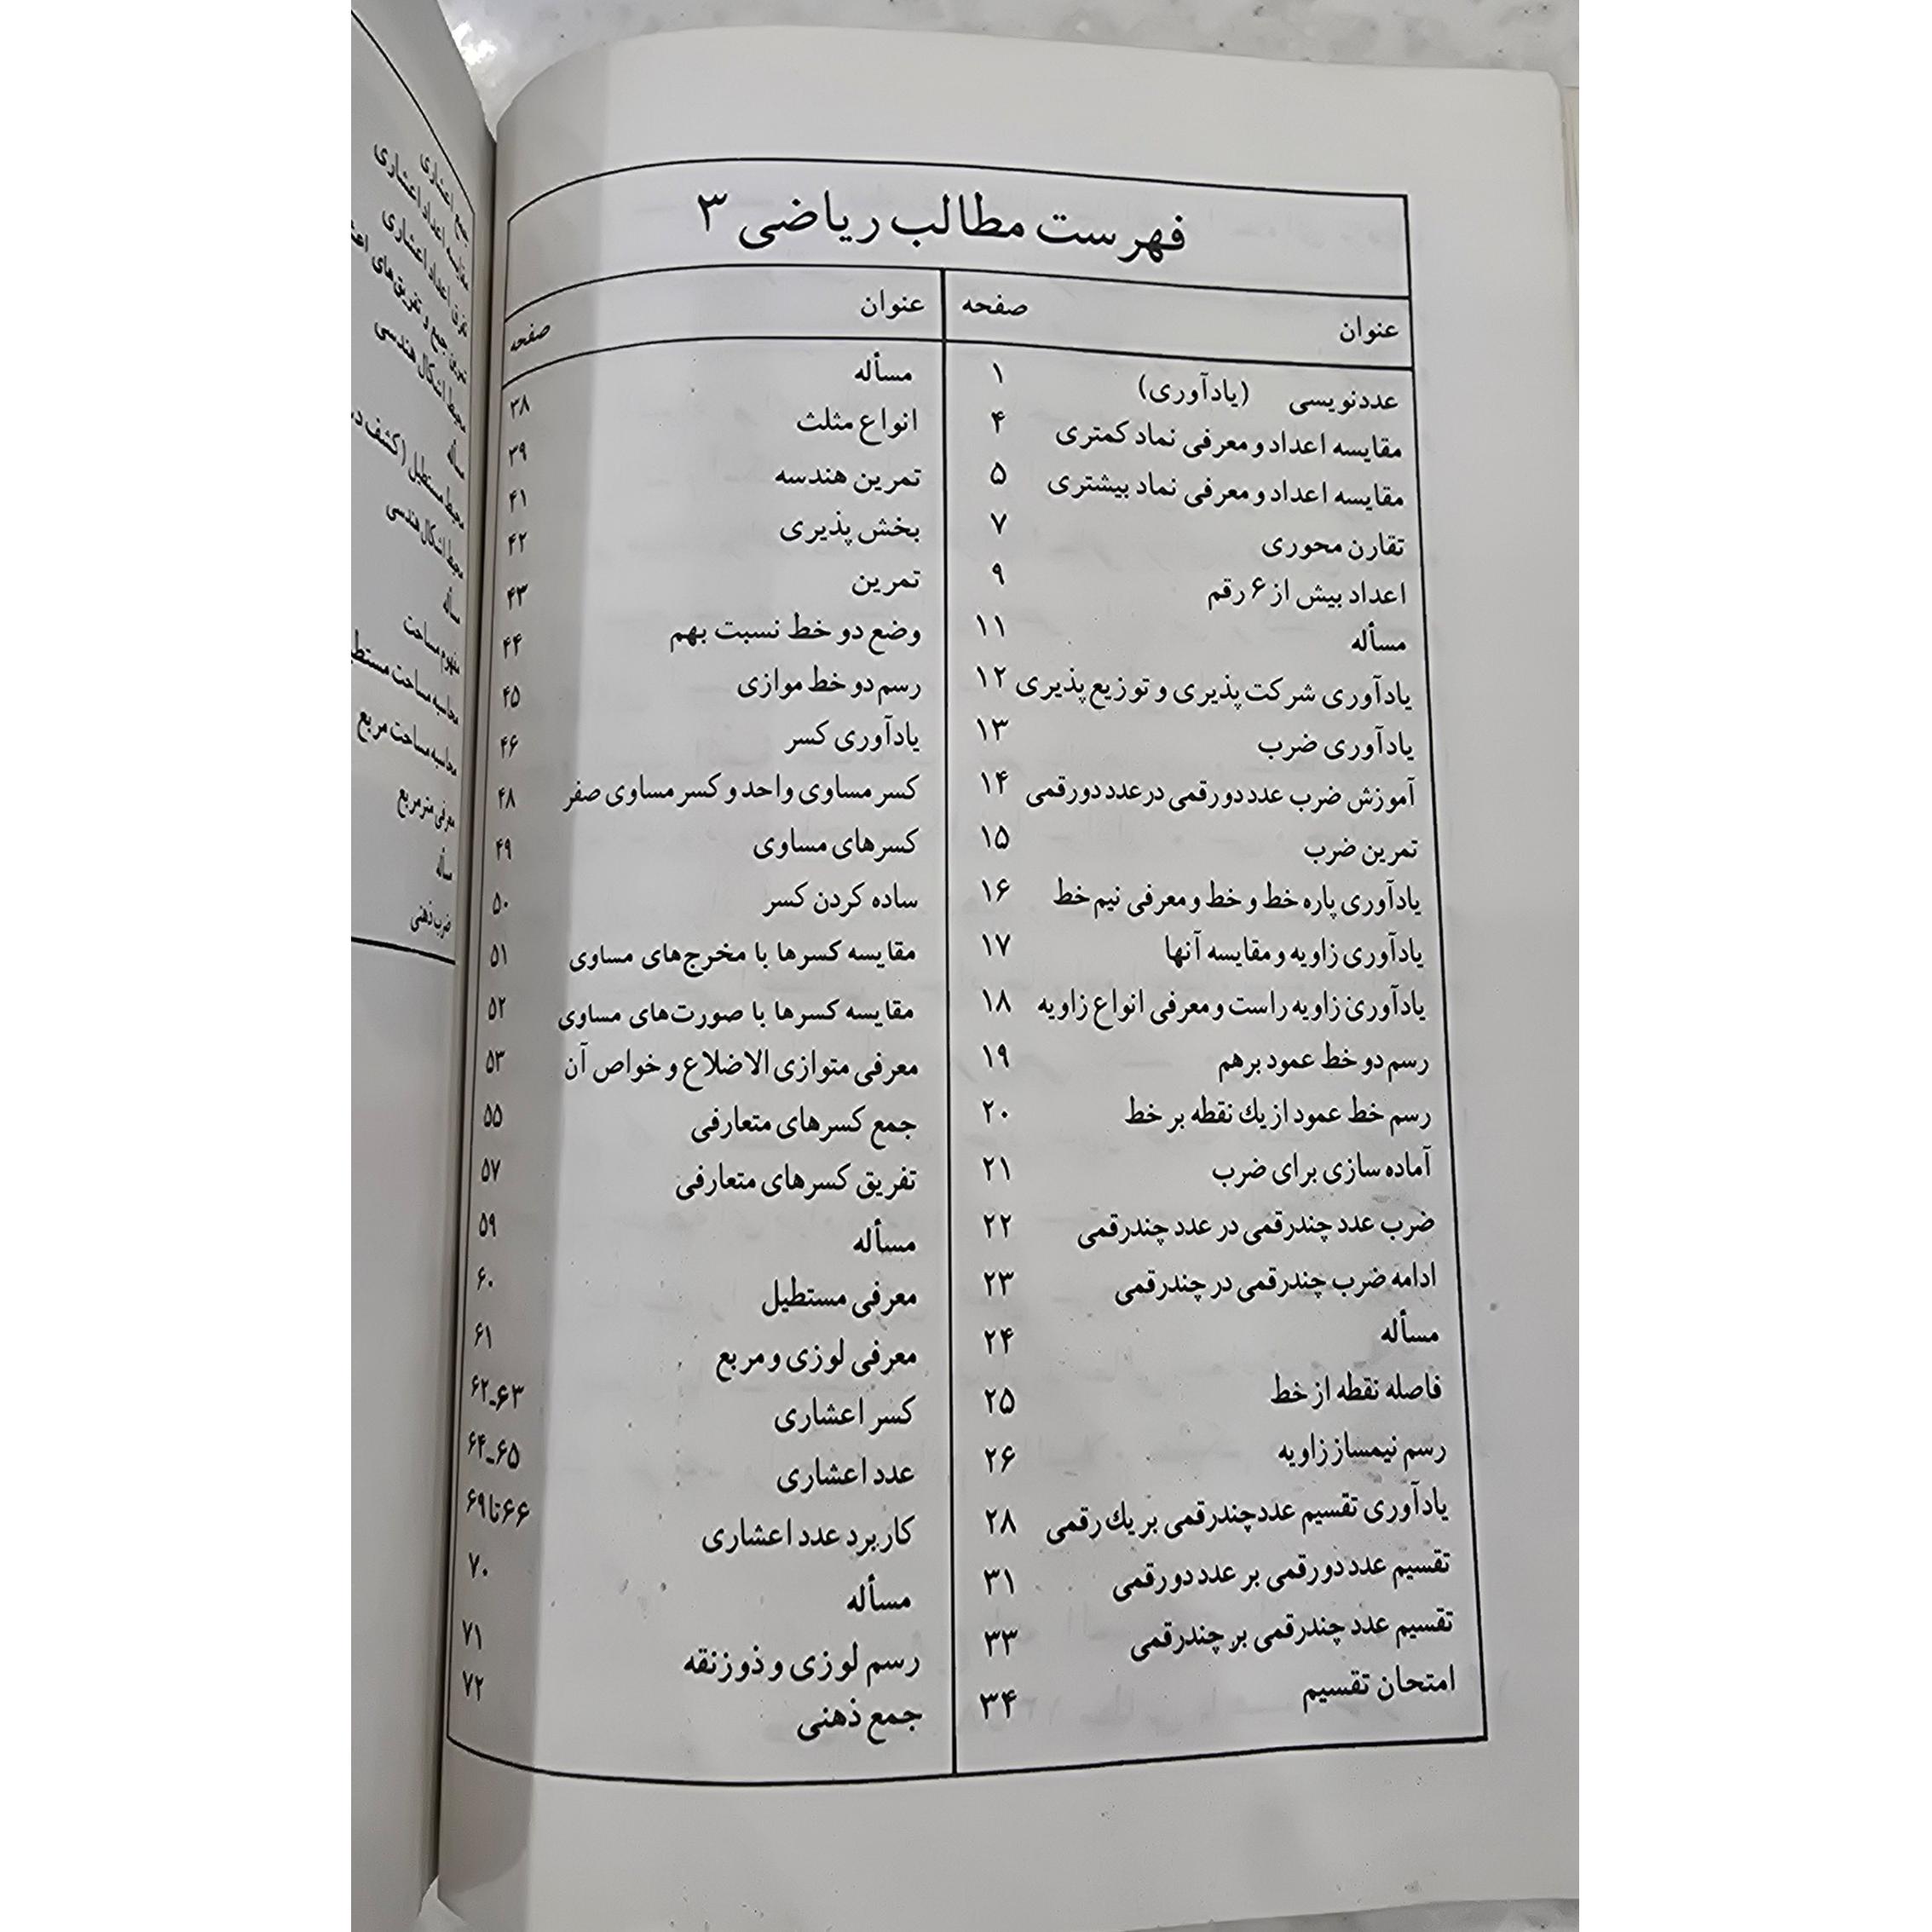 فهرست مطالب ریاضی ۳
عنوان صفحه
عددنویسی (یادآوری) ۱
مقایسه اعداد و معرفی نماد کمتری ۴
مقایسه اعداد و معرفی نماد بیشتری ۵
تقارن محوری ۷
اعداد بیش از ۶ رقم ۹
مسأله ۱۱
یادآوری شرکت‌پذیری و توزیع‌پذیری ۱۲
یادآوری ضرب ۱۳
آموزش ضرب عدد دورقمی در عدد دورقمی ۱۴
تمرین ضرب ۱۵
یادآوری پاره خط و خط و معرفی نیم خط ۱۶
یادآوری زاویه و مقایسه آنها ۱۷
یادآوری زاویه راست و معرفی انواع زاویه ۱۸
رسم دو خط عمود برهم ۱۹
رسم خط عمود از یك نقطه بر خط ۲۰
آماده سازی برای ضرب ۲۱
ضرب عدد چندرقمی در عدد چندرقمی ۲۲
ادامه ضرب چندرقمی در چندرقمی ۲۳
مسأله ۲۴
فاصله نقطه از خط ۲۵
رسم نیمساز زاویه ۲۶
یادآوری تقسیم عدد چندرقمی بر یك رقمی ۲۸
تقسیم عدد دورقمی بر عدد دورقمی ۳۱
تقسیم عدد چندرقمی بر چندرقمی ۳۳
امتحان تقسیم ۳۴
عنوان صفحه
مسأله ۳۸
انواع مثلث ۳۹
تمرین هندسه ۴۱
بخش پذیری ۴۲
تمرین ۴۳
وضع دو خط نسبت بهم ۴۴
رسم دو خط موازی ۴۵
یادآوری کسر ۴۶
کسر مساوی واحد و کسر مساوی صفر ۴۸
کسرهای مساوی ۴۹
ساده کردن کسر ۵۰
مقایسه کسرها با مخرج‌های مساوی ۵۱
مقایسه کسرها با صورت‌های مساوی ۵۲
معرفی متوازی الاضلاع و خواص آن ۵۳
جمع کسرهای متعارفی ۵۵
تفریق کسرهای متعارفی ۵۷
مسأله ۵۹
معرفی مستطیل ۶۰
معرفی لوزی و مربع ۶۱
کسر اعشاری ۶۲ـ۶۳
عدد اعشاری ۶۴ـ۶۵
کاربرد عدد اعشاری ۶۶تا۶۹
مسأله ۷۰
رسم لوزی و ذوزنقه ۷۱
جمع ذهنی ۷۲
جمع اعشاری
مقایسه اعداد اعشاری
تفرق اعداد اعشاری
تمرین جمع و تفریق‌های
محیط اشکال هندسی
مسأله
محیط مستطیل (کشف
محیط اشکال هندسی
مسأله
مفهوم مساحت
محاسبه مساحت
محاسبه مساحت مربع
معرفی مترمربع
مسأله
ضرب ذهنی